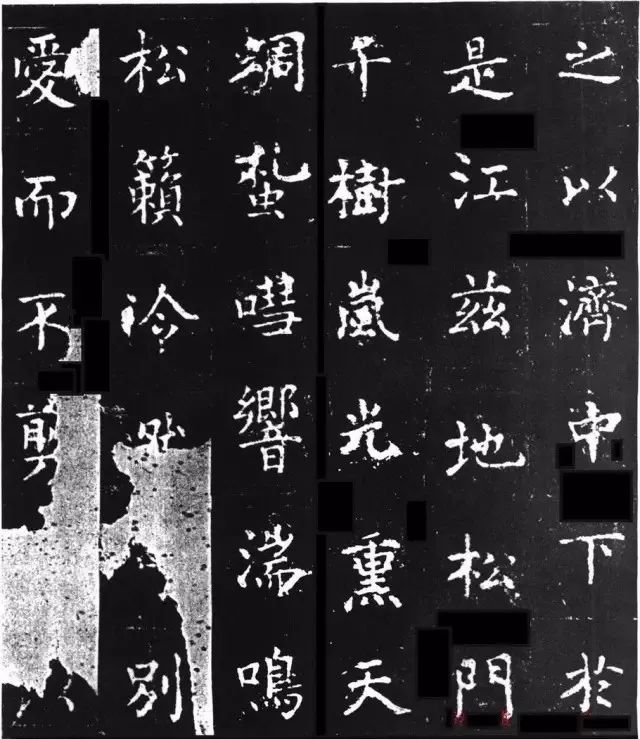 之以濟下於
是江茲地松門
樹嵐光熏天
蜩嘒響湍鳴
松籟泠別
愛而不剪